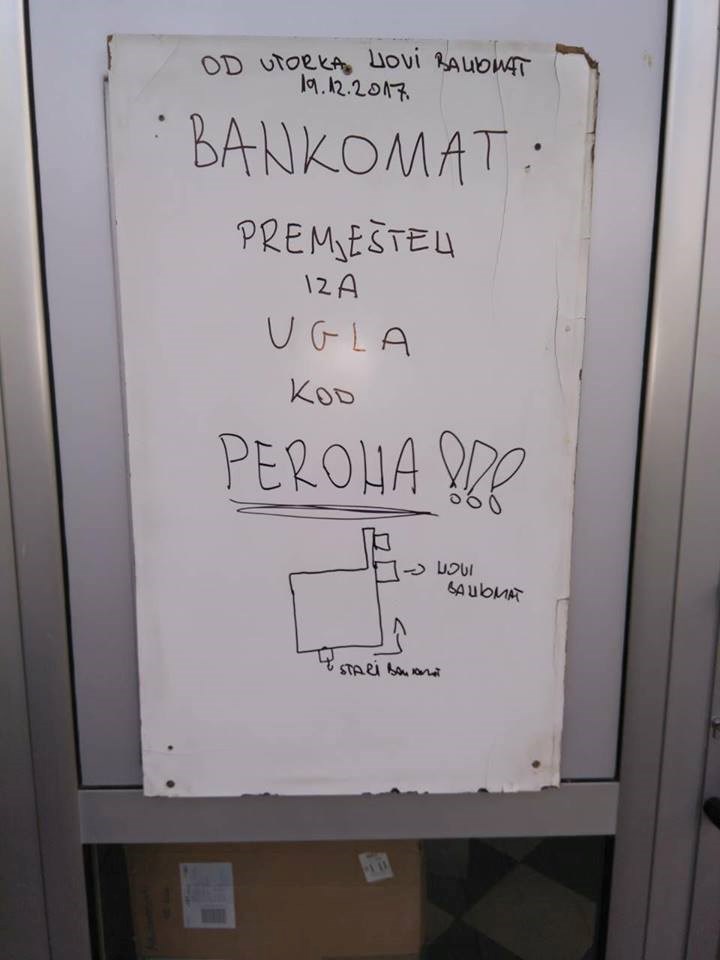 OD UTORKA NOVI BANKOMAT
19.12.2017.
BANKOMAT
PREMJEŠTEN
IZA
UGLA
KOD
PEROHA!!!
→ NOVI
BANKOMAT
STARI BANKOMAT